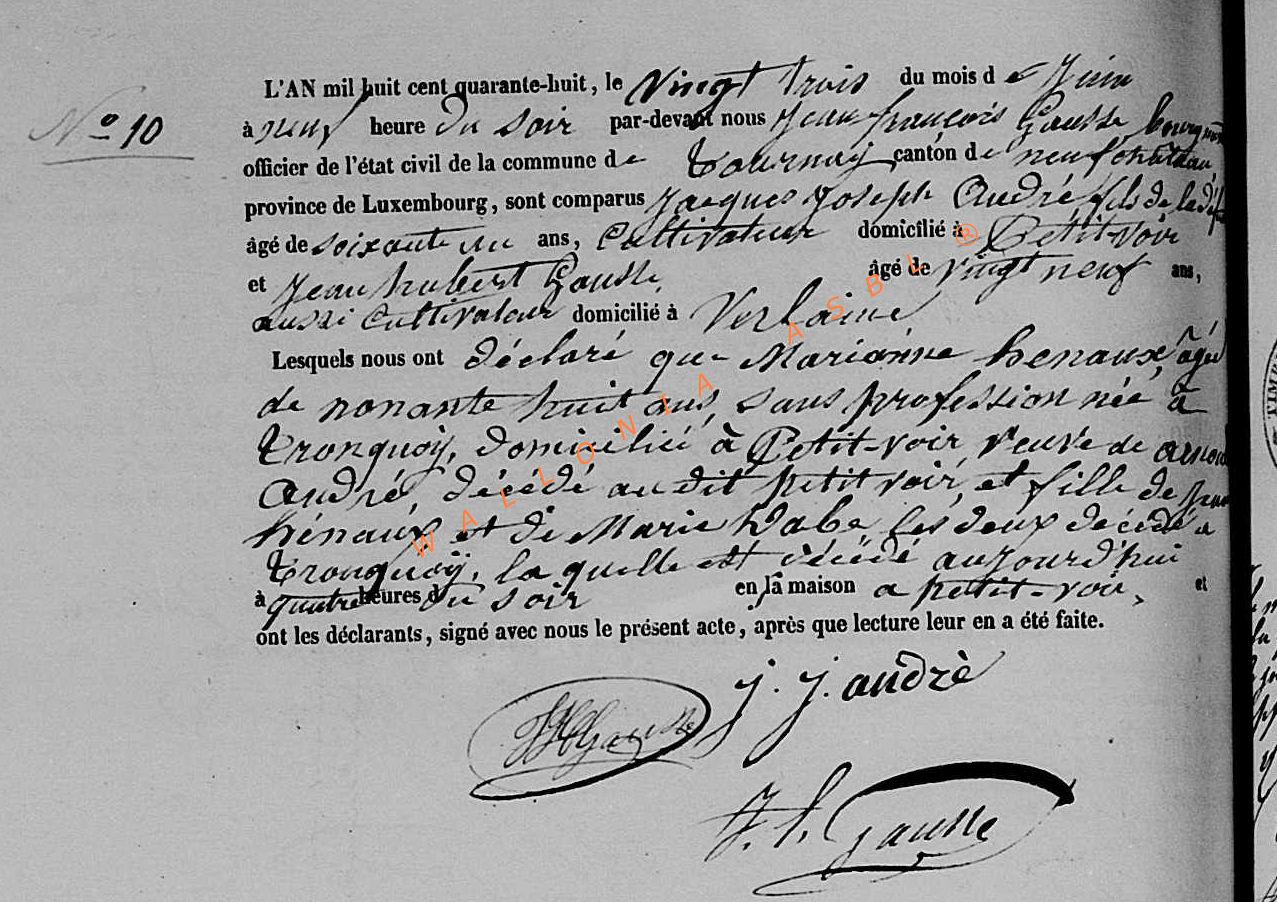 L'AN mil huit cent quarante-huit, le vingt trois du mois de Juin
N° 10
à neuf heure du soir par-devant nous Jean françois Gausse
officier de l'état civil de la commune de Tournay canton de neufchateau
province de Luxembourg, sont comparus Jacques Joseph André fils de la
âgé de soixante un ans, Cultivateur domicilié à Petit-voir
et Jean hubert Gausse, âgé de vingt neuf ans,
aussi Cultivateur domicilié à Verlaine
Lesquels nous ont déclaré que Marianne henaux, âgée
de nonante huit ans, sans profession née à
tronquoÿ, domicilié à Petit-voir, veuve de arnould
André, décédé au dit petit voir, et fille de
hénaux et de Marie Dabe les deux décédé a
tronquoÿ, la quelle est décédé aujourd'hui
à quatre heures du soir en la maison a petit-voir, et
ont les déclarants, signé avec nous le présent acte, après que lecture leur en a été faite.
WALLONIA ASBL ®
J. J. andrè
Gausse
J. h. Gausse